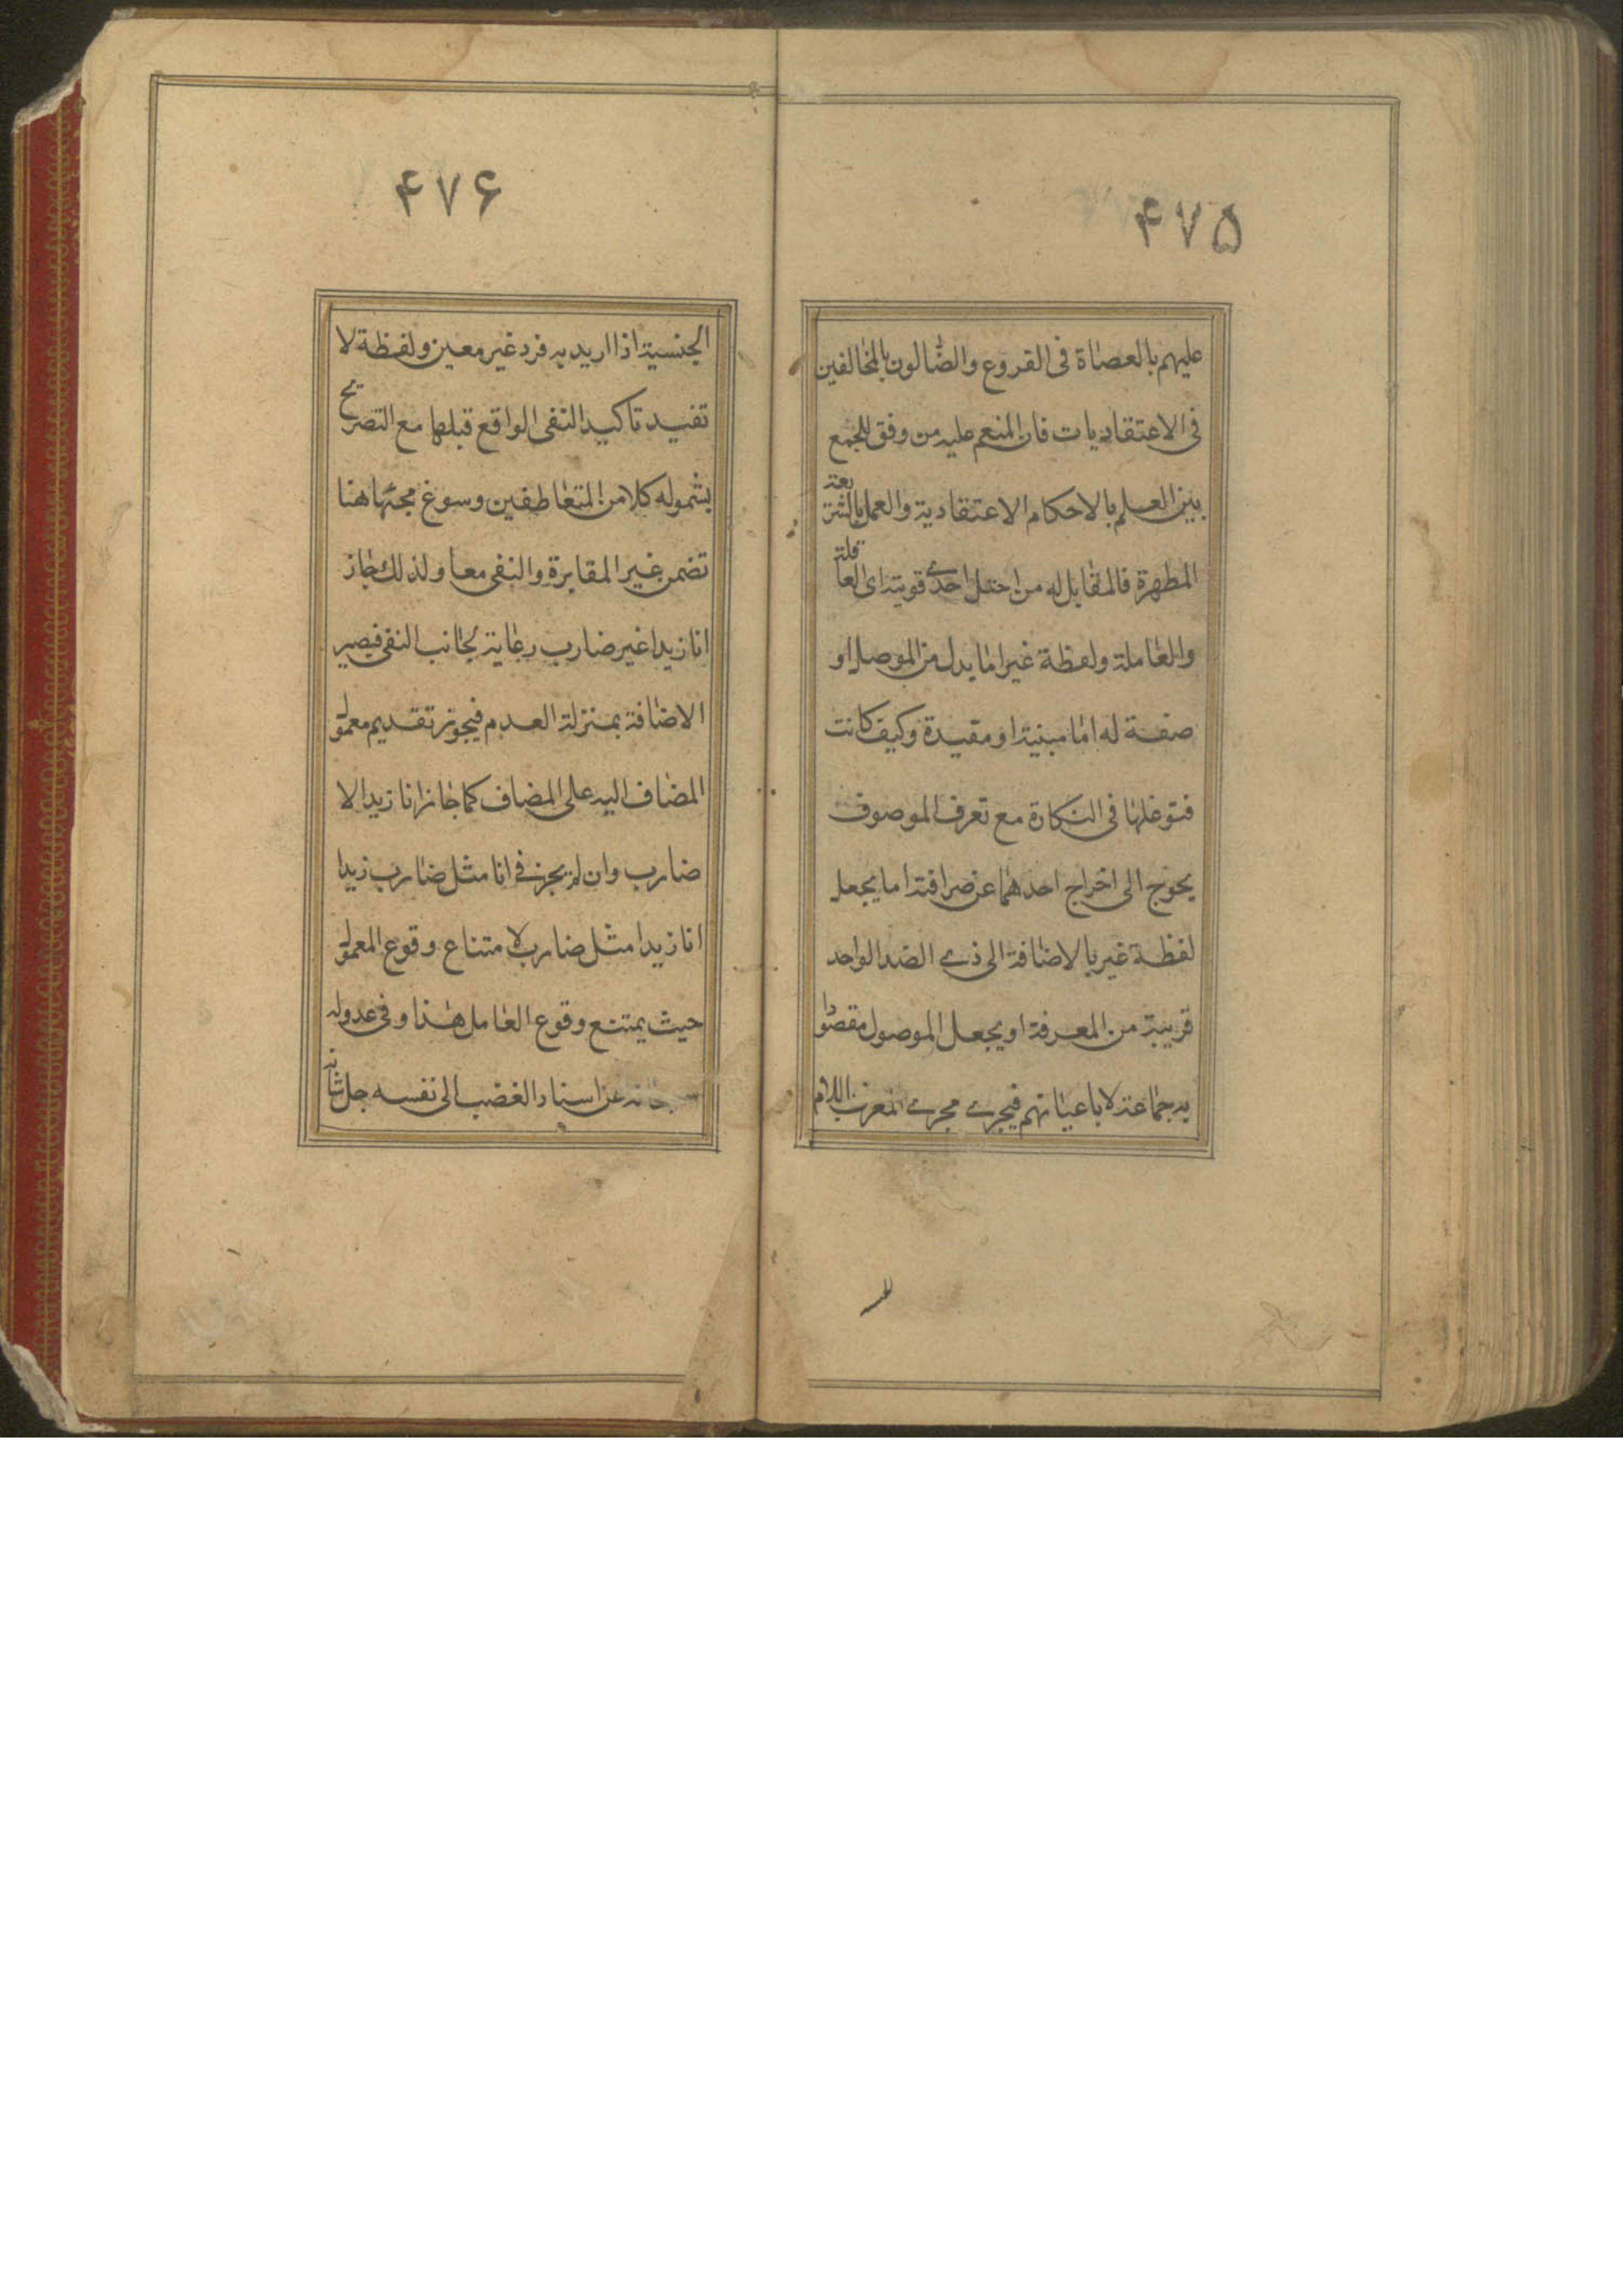 ۴۷۵
عليهم بالعصاة فى الفروع والضالون بالمخالفين
فى الاعتقاديات فان المنعم عليه من وفق للجمع
بين العلم بالاحكام الاعتقادية والعمل بالشريعة
المطهرة فالمقابل له من اختل احدے قوتيه اى العاقلة
والعاملة ولفظة غير اما بدل من الموصول او
صفة له اما مبينة او مقيدة وكيف كانت
فتوغلها فى النكارة مع تعرف الموصوف
يحوج الى اخراج احدهما عن صرافته اما بجعل
لفظة غير بالاضافة الى ذے الضد الواحد
قريبة من المعرفة او بجعل الموصول مقصودا
به جماعة لا باعيانهم فيجرے مجرے المعرف باللام
۴۷۶
الجنسية اذا اريد به فرد غير معين ولفظة لا
تفيد تاكيد النفى الواقع قبلها مع التصريح
بشموله كلا من المتعاطفين وسوغ مجئها هنا
تضمن غير المغايرة والنفى معا ولذلك جاز
انا زيدا غير ضارب رعاية لجانب النفى فيصير
الاضافة بمنزلة العدم فيجوز تقديم معمول
المضاف اليه على المضاف كما جاز انا زيدا لا
ضارب وان لم يجز فى انا مثل ضارب زيدا
انا زيدا مثل ضارب لامتناع وقوع المعمول
حيث يمتنع وقوع العامل هذا وفى عدوله
سبحانه عن اسناد الغضب الى نفسه جل شانه